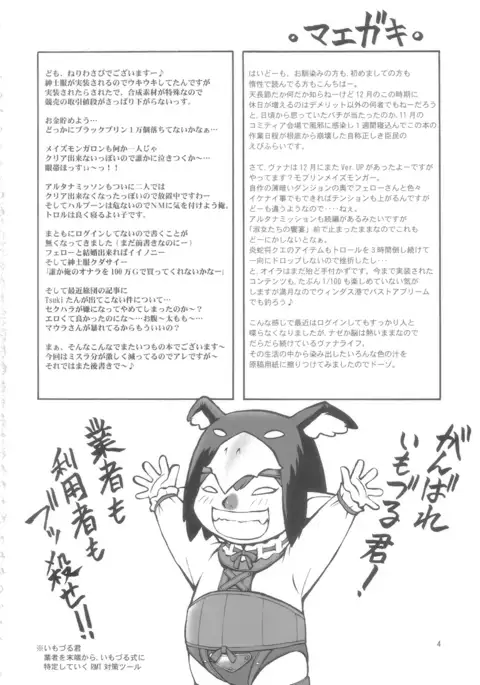 。マエガキ。
はいどーも、お馴染みの方も、初めましての方も
惰性で読んでる方もこんちはー。
天長節だか何だか知らねーけど12月のこの時期に
休日が増えるのはデメリット以外の何者でもねーだろう
と、日頃から思っていたらバチが当たったのか、11月の
コミティア会場で風邪に感染し1週間寝込んでこの本の
作業日程が根底から崩壊した自称正しき臣民の
えびふらいです。
さて、ヴァナは12月にまたVer.UPがあったよーですが
やってます?モブリンメイズモンガー。
自作の薄暗いダンジョンの奥でフェローさんと色々
イケナイ事でもできればテンションも上がるんですが
どーも違うようなので・・・ねぇ。
アルタナミッションも続編があるみたいですが
「淑女たちの饗宴」前で止まったままなのでこれも
どーにかしないとなぁ。
炎蛇将クエのアイテムもトロールを3時間倒し続けて
一向にドロップしないので挫折したし…
と、オイラはまだ殆ど手付かずです、今まで実装された
コンテンツも、たぶん1/100も楽しめていない気が
しますが満月なのでウィンダス港でバストアブリーム
でも釣ろう♪
こんな感じで最近はログインしてもすっかり人と
喋らなくなりましたが、ナゼか脳は熱いままなので
だらだら続けているヴァナライフ、
その生活の中から染み出したいろんな色の汁を
原稿用紙に擦りつけてみましたでドーゾ。
ども、ねりわさびでございますー♪
紳士服が実装されるのでウキウキしてたんですが
実装されたらされたで、合成素材が特殊なので
競売の取引値段がさっぱり下がらないっす。
お金貯めよう…
どっかにブラックプリン1万個落ちてないかなぁ…
メイズモンガロンも何か一人じゃ
クリア出来ないっぽいので誰かに泣きつくか〜…
眼器はっすぃ〜っ!!
アルタナミッソンもついに二人では
クリア出来なくなったっぽいので放置中ですわー
そしてハルブーンは危ないのでNMに気を付けよう俺、
トロルは良く寝るよい子です。
まともにログインしてないので書くことが
無くなってきました(まだ前書きなのにー)
フェローと結婚出来ればイイノニー
そして紳士服クダサイー
「誰か俺のオナラを100万Gで買ってくれないかなー」
そして最近旅団の記事に
Tsukiたんが出てこない件について…
セクハラが嫌になってやめてしまったのか〜?
エロくて良かったのにな〜…お腹〜太もも〜…
マウラさんが暴れてるからもういいの?
まぁ、そんなこんなでまたいつもの本でございます〜
今回はミスラ分が激しく減ってるでアレですが〜
それではまた後書きで〜♪
がんばれ
いもづる君!
業者も
利用者も
ブッ殺せ!!
※いもづる君
業者を末端から、いもづる式に
特定していくRMT対策ツール
4